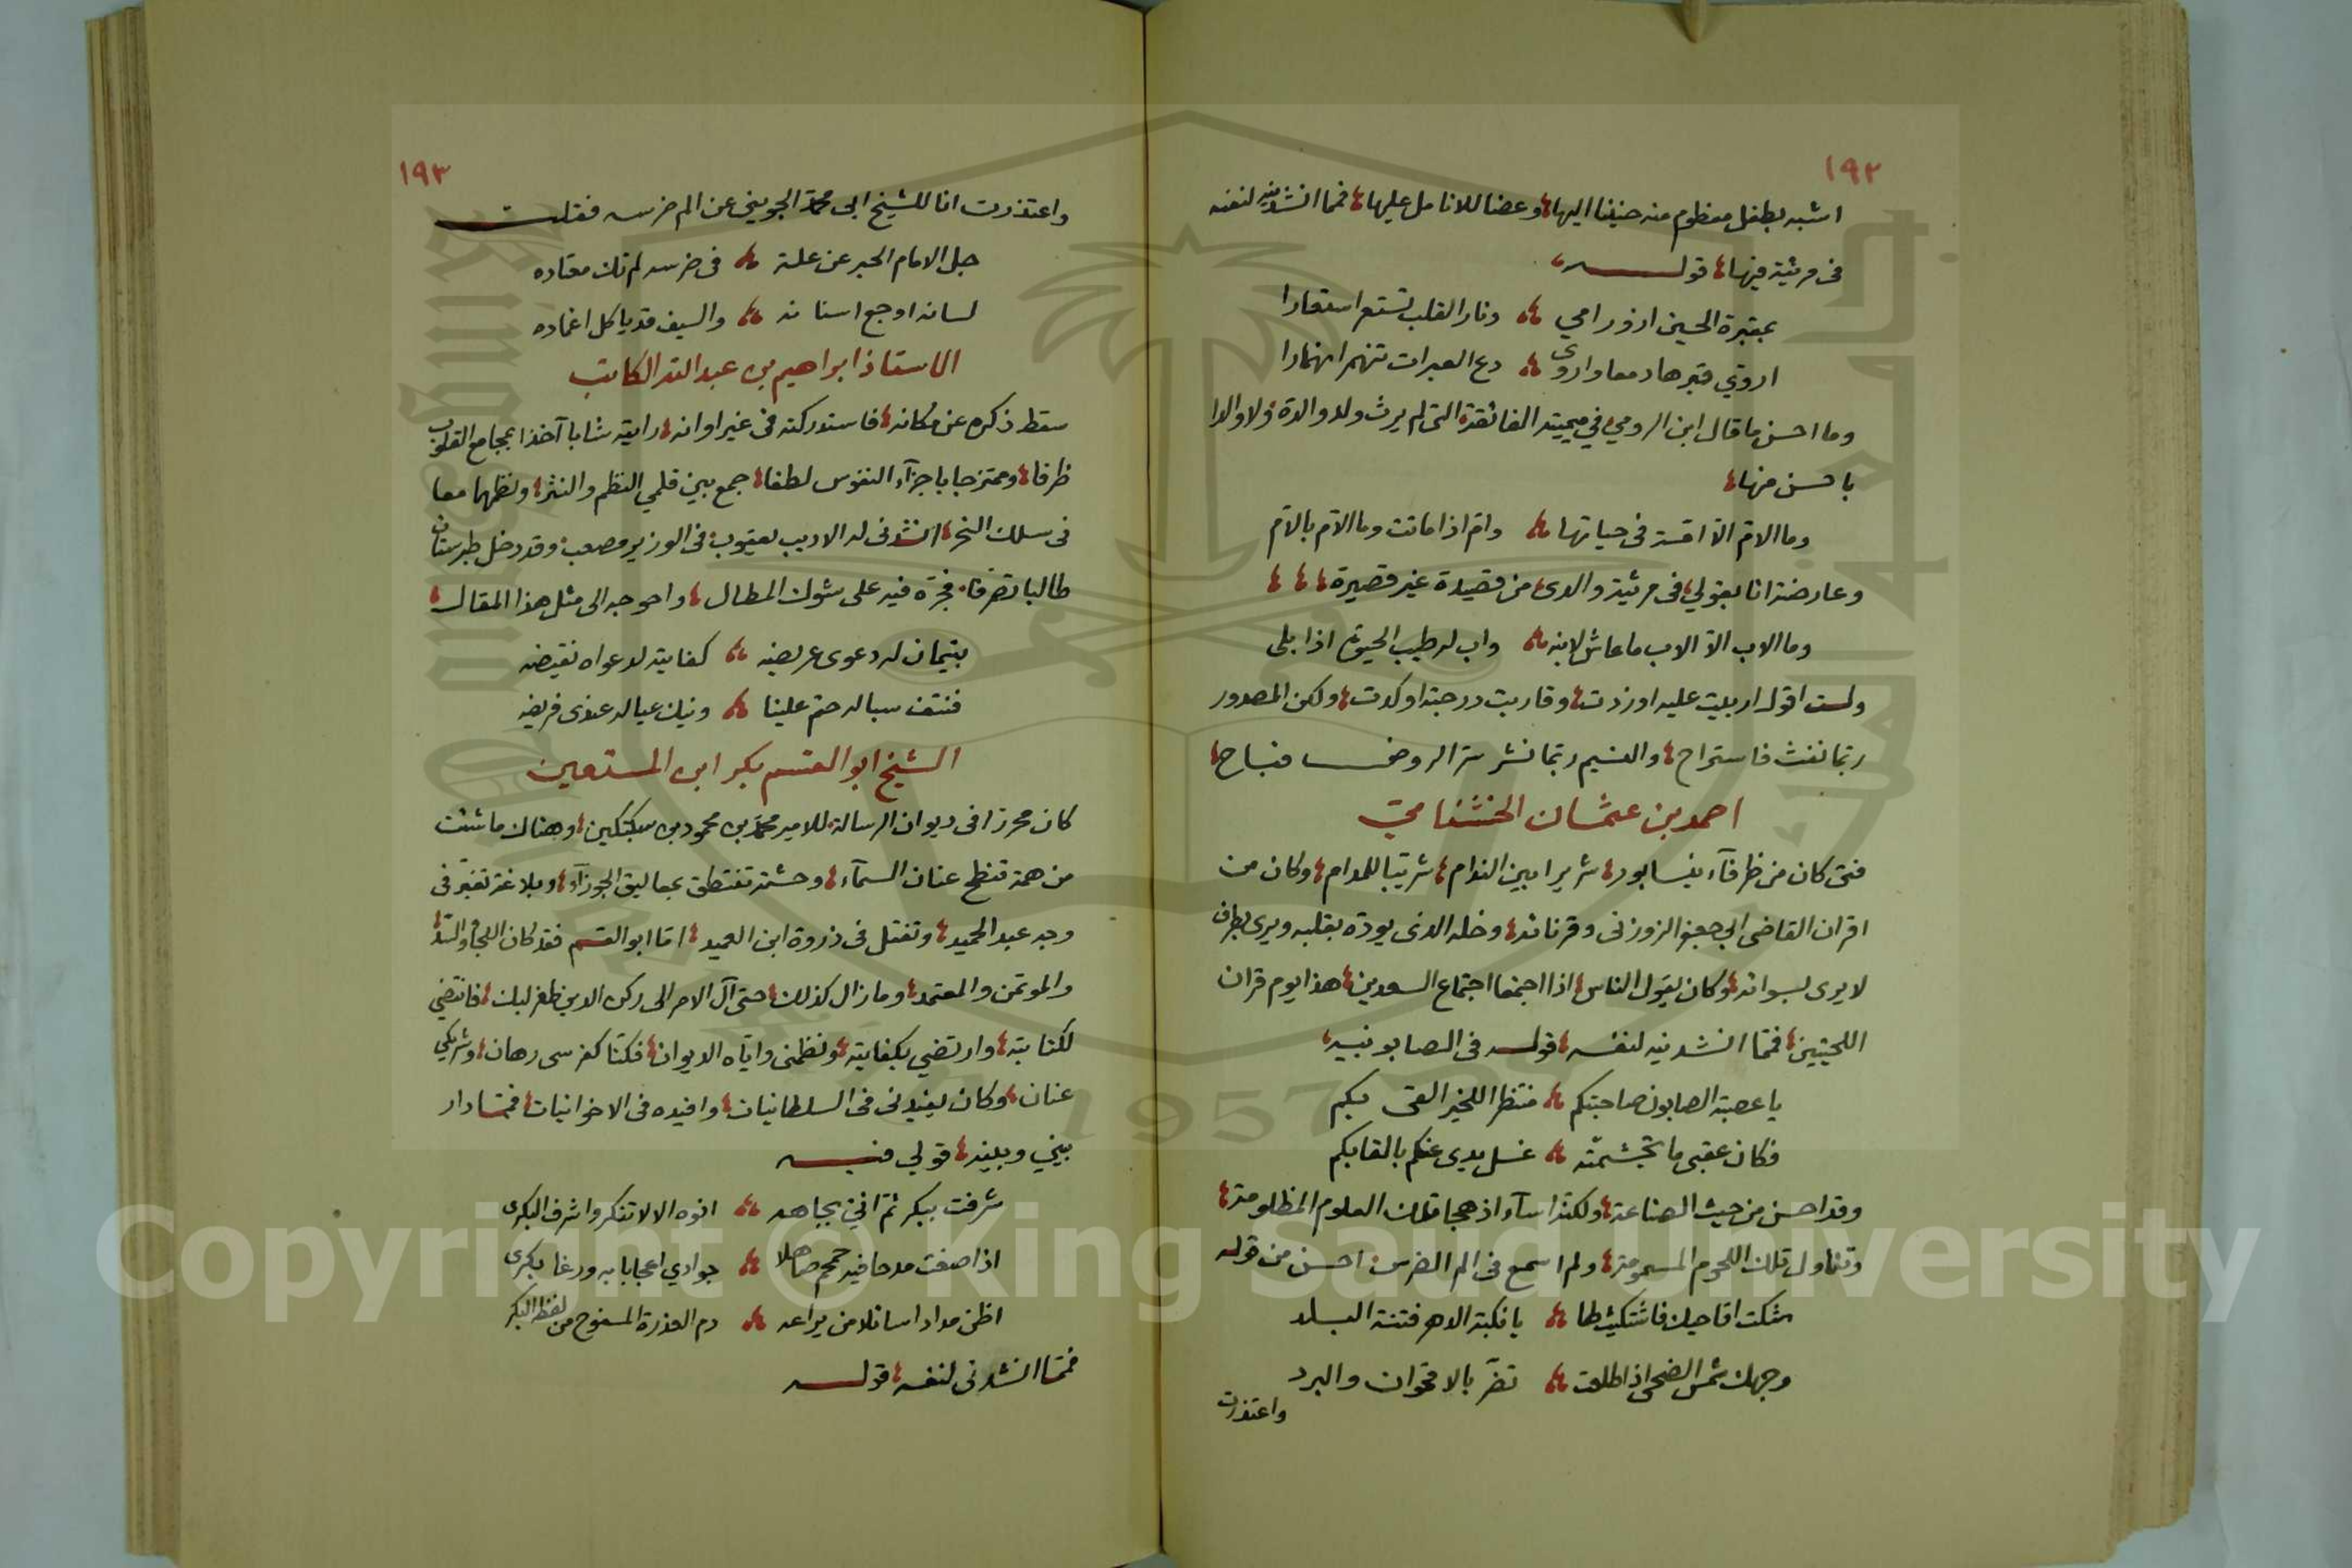 ١٩٢
اشبه بطفل مفطوم منه حنينا اليها وعضا للانامل عليها فمما انشدنيه لنفسه
فى مرثية فيها قوله
بمقبرة الحسين ازور امي ونار القلب تستعر استعارا
اروّي قبرها دمعا واروى دع العبرات تنهمر انهمارا
وما احسن ما قال ابن الرومي في ميميته الفائقة التى لم يرث ولد والدة ولا والدا
باحسن منها
وما الام الا امة فى حياتها وام اذا ماتت وما الام بالام
وعارضته انا بقولي فى مرثية والدى من قصيدة غير قصيرة
وما الاب الا الاب ما عاش لابنه واب لرطيب الحيوة اذا بلى
ولست اقول اربيت عليه اوزدت وقاربت درجته اوكدت ولكن المصدور
ربما نفث فاستراح والنسيم ربما نشر سر الروض فباح
احمد بن عثمان الخشنامي
فتى كان من ظرفآء نيسابور شريرا بين الندام شريبا للمدام وكان من
اقران القاضى ابى جعفر الزوزنى وقرنائه وخله الذى يوده بقلبه ويرى بطرف
لا يرى بسوائه وكان يقول الناس اذا اجتمعا اجتماع السعدين هذا يوم قران
اللحيتين فمما انشدنيه لنفسه قوله فى الصابونيه
يا عصبة الصابون صاحبتكم منتظرا للخير القى بكم
فكان عقبى ما تجشمته غسل يدى عنكم بالقابكم
وقد احسن من حيث الصناعة ولكنه اسآء اذ هجا تلك العلوم المظلومة
وتناول تلك اللحوم المسمومة ولم اسمع فى الم الضرس احسن من قوله
شكت اقاحيك فاشتكيت لها يا نكبة الدهر فتنة البلد
وجهك شمس الضحى اذا طلعت تضر بالاقحوان والبرد
واعتذرت
١٩٣
واعتذرت انا للشيخ ابى محمد الجوينى عن الم ضرسه فقلت
جل الامام الحبر عن علة فى ضرسه لم تك معتاده
لسانه اوجع اسنانه والسيف قد ياكل اغماده
الاستاذ ابراهيم بن عبد الله الكاتب
سقط ذكره عن مكانه فاستدركته فى غير اوانه رايته شابا آخذا بمجامع القلوب
ظرفا وممتزجا باجزآء النفوس لطفا جمع بين قلمي النظم والنثر ونظمهما معا
فى سلك النحر انشدنى له الاديب يعقوب فى الوزير مصعب وقد دخل طبرستان
طالبا تصرفا فجره فيه على شوك المطال واحوجه الى مثل هذا المقال
بنيمان له دعوى عريضه كفايته لدعواه نقيضه
فنتف سباله حتم علينا ونيك عياله عندى فريضه
الشيخ ابو القسم بكر ابن المستعين
كان محررا فى ديوان الرسالة للامير محمد بن محمود بن سبكتكين وهناك ما شئت
من همة تنطح عنان السمآء وحشمة تنتطق بمعاليق الجوزآء وبلاغة تغبر فى
وجه عبد الحميد وتفتل فى ذروة ابن العميد اما ابو القسم فقد كان
والموتمن والمعتمد وما زال كذلك حتى آل الامر الى ركن الدين طغرلبك فانتضي
لكتابته وارتضي بكفايته ونظمنى واياه الديوان فكنا كفرسى رهان وشريكي
عنان وكان يفيدنى فى السلطانيات وافيده فى الاخوانيات فمما دار
بيني وبينه قولي فيه
شرفت ببكر ثم اني بجاهه انوه الا لا تنكروا شرف البكرى
اذا صغت مدحا فيه حمحم صاهلا جوادي اعجابا به ورغا بكرى
اظن مداد اسائلا من يراعه دم العذرة المسفوح من لفظه البكر
فمما انشدنى لنفسه قوله
Copyright © King Saud University
1957